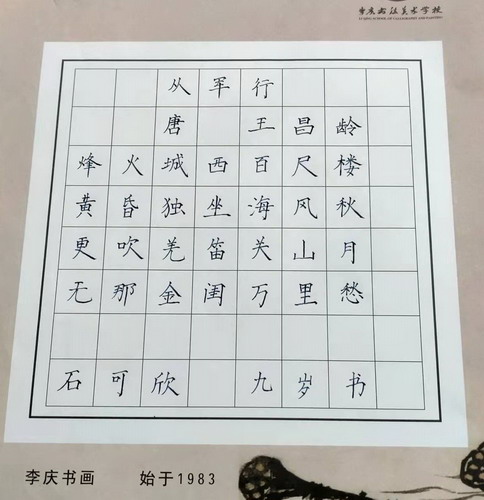 李庆书画美术学校
从军行
唐 王昌龄
烽火城西百尺楼
黄昏独坐海风秋
更吹羌笛关山月
无那金闺万里愁
石可欣 九岁书
李庆书画 始于1983